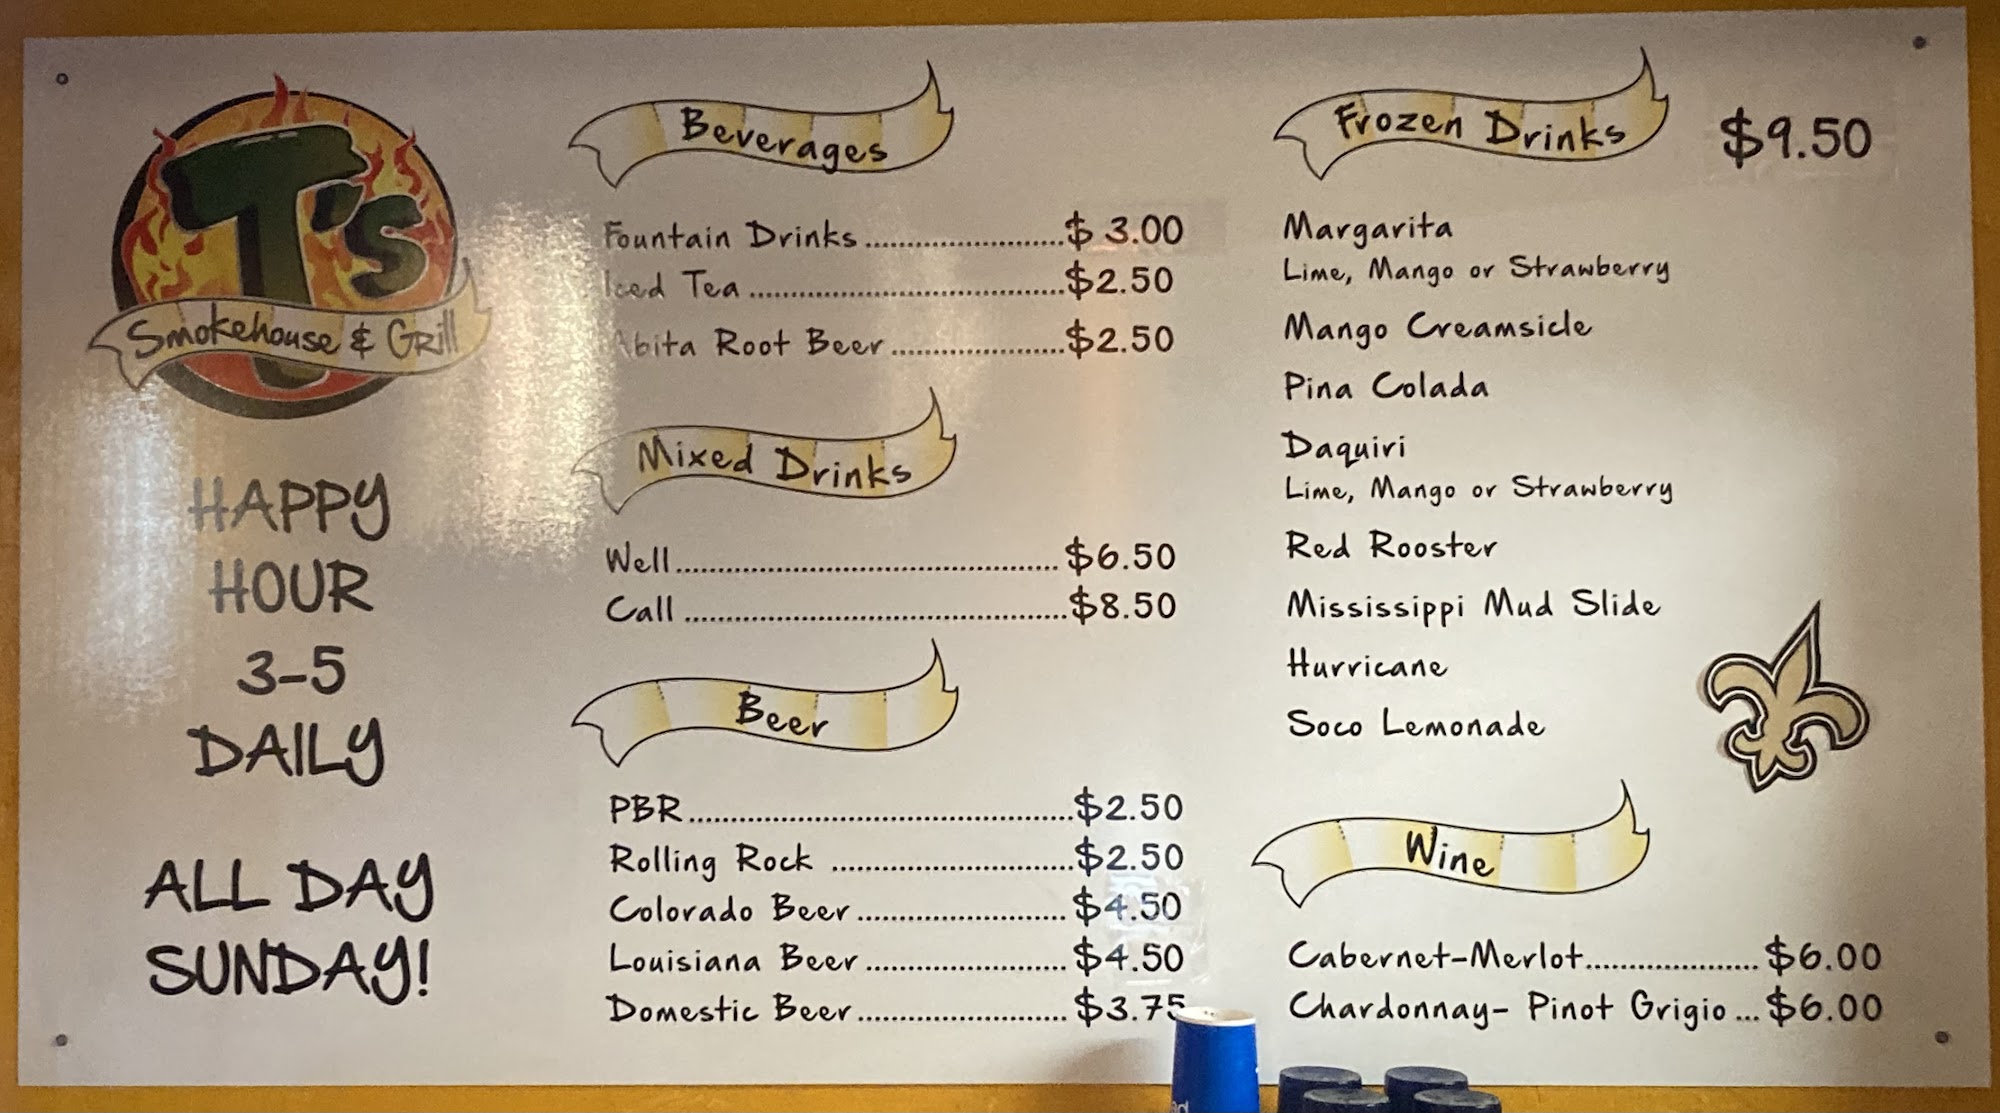 T's
Smokehouse & Grill
HAPPY
HOUR
3-5
DAILY
ALL DAY
SUNDAY!
Beverages
Fountain Drinks........................$ 3.00
Iced Tea....................................$2.50
Abita Root Beer....................$2.50
Mixed Drinks
Well.......................................... $6.50
Call..........................................$8.50
Beer
PBR..........................................$2.50
Rolling Rock ..........................$2.50
Colorado Beer....................... $4.50
Louisiana Beer...................... $4.50
Domestic Beer....................... $3.75
Frozen Drinks $9.50
Margarita
Lime, Mango or Strawberry
Mango Creamsicle
Pina Colada
Daquiri
Lime, Mango or Strawberry
Red Rooster
Mississippi Mud Slide
Hurricane
Soco Lemonade
Wine
Cabernet-Merlot................... $6.00
Chardonnay- Pinot Grigio ... $6.00